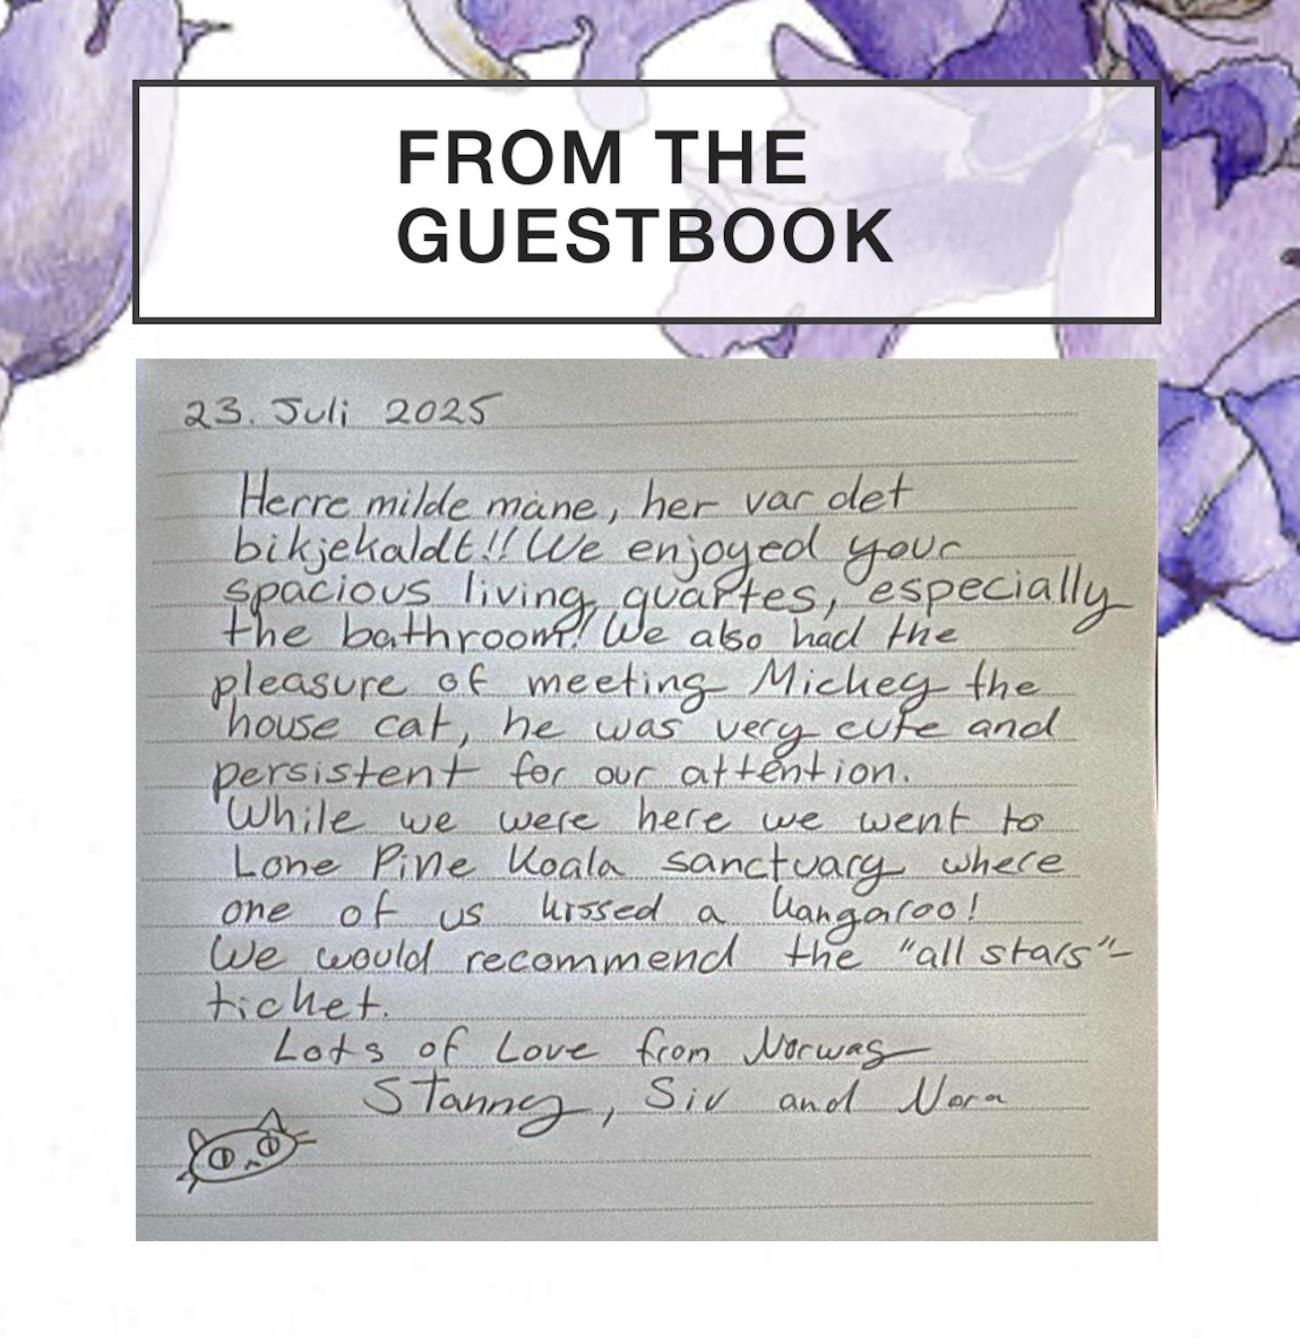 FROM THE
GUESTBOOK
23. Juli 2025
Herre milde måne, her var det
bikjekaldt!! We enjoyed your
spacious living quartes, especially
the bathroom! We also had the
pleasure of meeting Mickey the
house cat, he was very cute and
persistent for our attention.
While we were here we went to
Lone Pine Koala sanctuary where
one of us kissed a kangaroo!
We would recommend the "all stars"-
ticket.
Lots of Love from Norway
Stanney, Siv and Nora